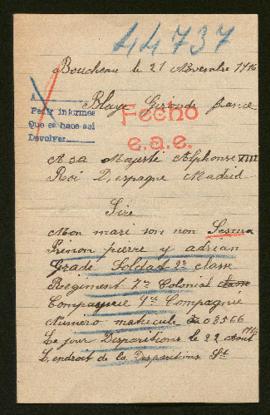 44737
Boucheau le 21 Novembre 1916
Blaye Gironde france
A
Pedir informes
Que se hace asi
Devolver
Fecho
e.a.e.
A Sa Majesté Alphonse XIII
Roi D'espagne Madrid
Sire
Mon mari son non
Prenon pierre y adrian
Grade Soldat 2e class
Regiment 7e Colonial
Compagnie 9e Compagnie
Numero matricule 03566
Le jour Disparitions le 22 Aout
L'endroit de la Disparitions St